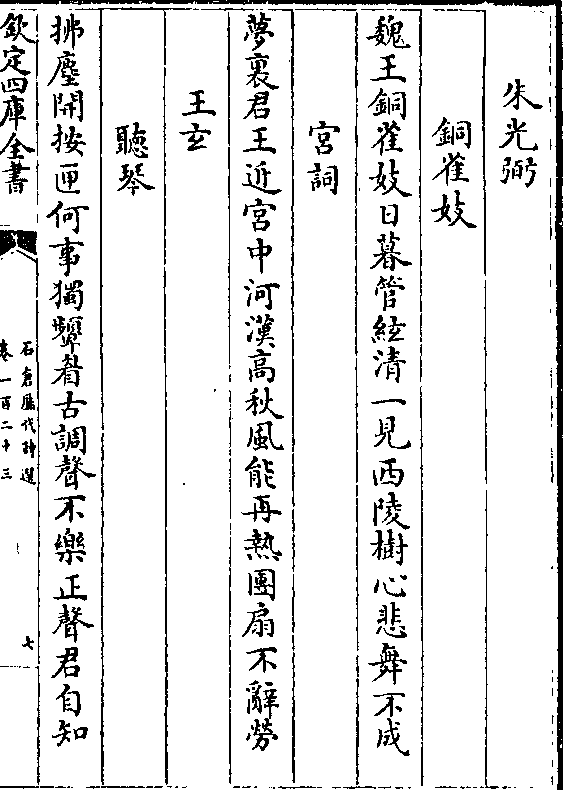 朱光弼
銅雀妓
魏王銅雀妓日暮管絃清一見西陵樹心悲舞不成
宮詞
夢裏君王近宮中河漢高秋風能再熱團扇不辭勞
王玄
聽琴
拂塵開按匣何事獨顰眉古調聲不樂正聲君自知
欽定四庫全書
石倉歷代詩選
卷一百二十三
七